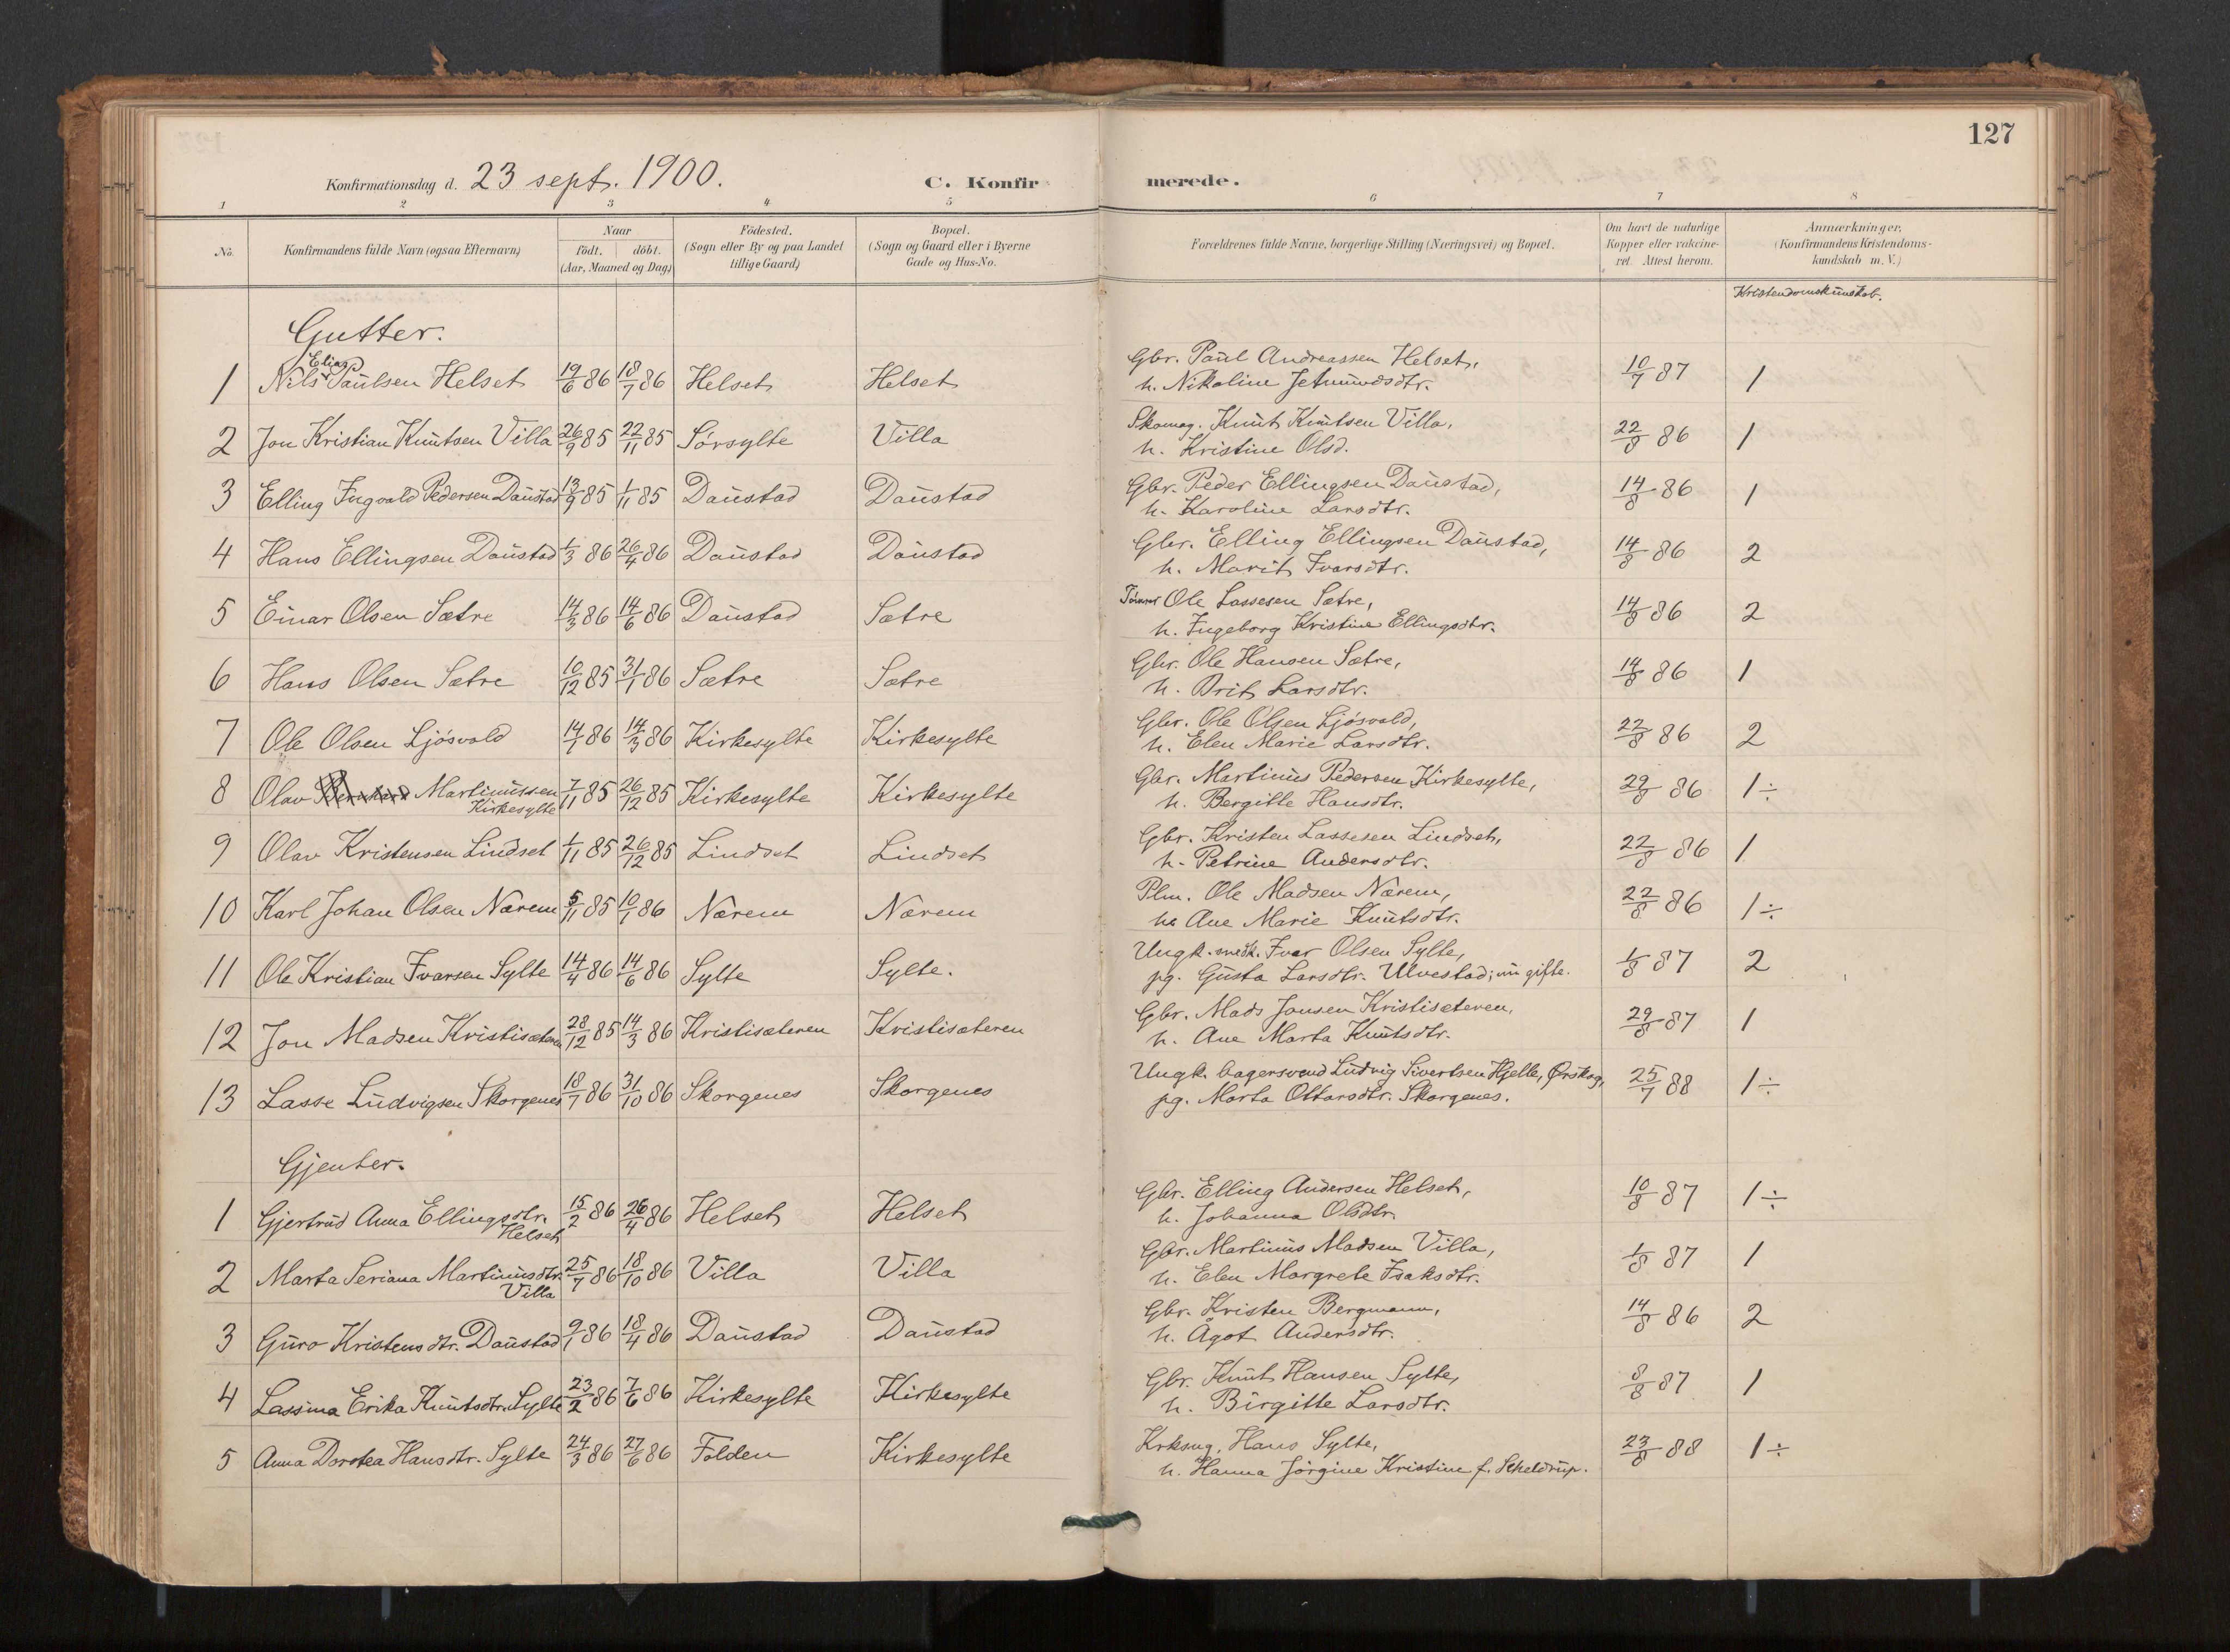 127
Konfirmationsdag d. 23 sept. 1900. C. Konfir merede.
1 2 3 4 5 6 7 8
No. Konfirmandens fulde Navn (ogsaa Efternavn) Naar født. døbt. (Aar, Maaned og Dag) Fødested. (Sogn eller By og paa Landet tillige Gaard) Bopæl. (Sogn og Gaard eller i Byerne Gade og Hus-No. Forældrenes fulde Navne, borgerlige Stilling (Næringsvei) og Bopæl. Om havt de naturlige Kopper eller vakcineret. Attest herom. Anmærkninger, (Konfirmandens Kristendomskundskab m. V.)
Kristendomskunskab.
Gutter.
1 Nils Elias Paulsen Helset 19/6 86 18/7 86 Helset Helset Gbr. Paul Andreassen Helset, 10/7 87 1
h. Nikoline Jetmundsdtr.
2 Jon Kristian Knutsen Villa 26/9 85 22/11 85 Sørsylte Villa Skomag. Knut Knutsen Villa, 22/8 86 1
h. Kristine Olsd.
3 Elling Ingvald Pedersen Daustad 13/9 85 1/11 85 Daustad Daustad Gbr. Peder Ellingsen Daustad, 14/8 86 1
h. Karoline Larsdtr.
4 Hans Ellingsen Daustad 1/3 86 26/4 86 Daustad Daustad Gbr. Elling Ellingsen Daustad, 14/8 86 2
h. Marit Ivarsdtr.
5 Einar Olsen Sætre 14/3 86 14/6 86 Daustad Sætre Ole Lassesen Sætre, 14/8 86 2
h. Ingeborg Kristine Ellingsdtr.
6 Hans Olsen Sætre 10/12 85 31/1 86 Sætre Sætre Gbr. Ole Hansen Sætre, 14/8 86 1
h. Brit Larsdtr.
7 Ole Olsen Ljøsvold 14/1 86 14/3 86 Kirkesylte Kirkesylte Gbr. Ole Olsen Ljøsvold, 22/8 86 2
h. Elen Marie Larsdtr.
8 Olav Martinussen Kirkesylte 7/11 85 26/12 85 Kirkesylte Kirkesylte Gbr. Martinus Pedersen Kirkesylte, 29/8 86 1÷
h. Bergitte Hansdtr.
9 Olav Kristensen Lindset 1/11 85 26/12 85 Lindset Lindset Gbr. Kristen Lassesen Lindset, 22/8 86 1
h. Petrine Andersdtr.
10 Karl Johan Olsen Nærem 5/11 85 10/1 86 Nærem Nærem Plm. Ole Madsen Nærem, 22/8 86 1÷
h. Ane Marie Knutsdtr.
11 Ole Kristian Ivarsen Sylte 14/4 86 14/6 86 Sylte Sylte. Ungk. snedk. Ivar Olsen Sylte, 1/8 87 2
pg. Gusta Larsdtr. Ulvestad; nu gifte.
12 Jon Madsen Kristisæteren 28/12 85 14/3 86 Kristisæteren Kristisæteren Gbr. Mads Jonsen Kristisæteren, 29/8 87 1
h. Ane Marta Knutsdtr.
13 Lasse Ludvigsen Skorgenes 18/7 86 31/10 86 Skorgenes Skorgenes Ungk. bagersvend Ludvig Sivertsen Hjelle, Ørskog, 25/7 88 1÷
pg. Marta Ottarsdtr. Skorgenes.
Gjenter.
1 Gjertrud Anna Ellingsdtr. Helset 15/2 86 26/4 86 Helset Helset Gbr. Elling Andersen Helset, 10/8 87 1÷
h. Johanna Olsdtr.
2 Marta Seriana Martinusdtr. Villa 25/7 86 18/10 86 Villa Villa Gbr. Martinus Madsen Villa, 1/8 87 1
h. Elen Margrete Isaksdtr.
3 Guro Kristensdtr. Daustad 9/1 86 18/4 86 Daustad Daustad Gbr. Kristen Bergmann, 14/8 86 2
h. Ågot Andersdtr.
4 Lassina Erika Knutsdtr. Sylte 23/2 86 7/6 86 Kirkesylte Kirkesylte Gbr. Knut Hansen Sylte, 8/8 87 1
h. Birgitte Larsdtr.
5 Anna Dorotea Hansdtr. Sylte 24/3 86 27/6 86 Folden Kirkesylte Krksng. Hans Sylte, 23/8 88 1÷
h. Hanna Jørgine Kristine f. Scheldrup.